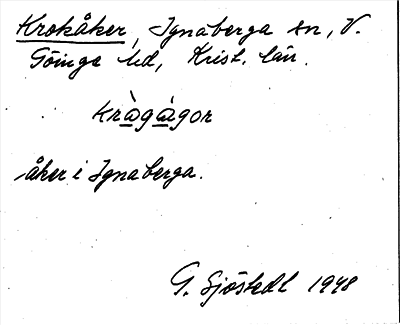 Krokåker, Ignaberga sn, V.
Göinge hd, Krist. län.
kràgàgor
åker i Ignaberga.
G. Sjöstedt 1948